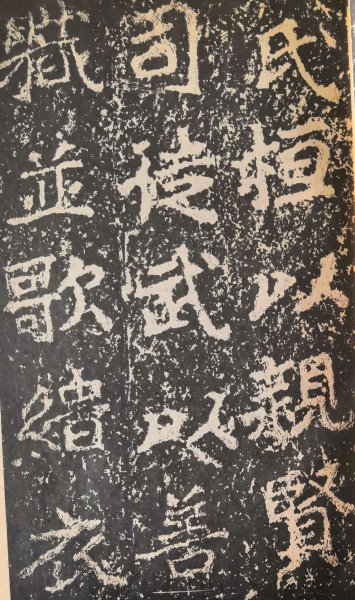 氏桓以親賢
司徒武以善
職並歌緇衣